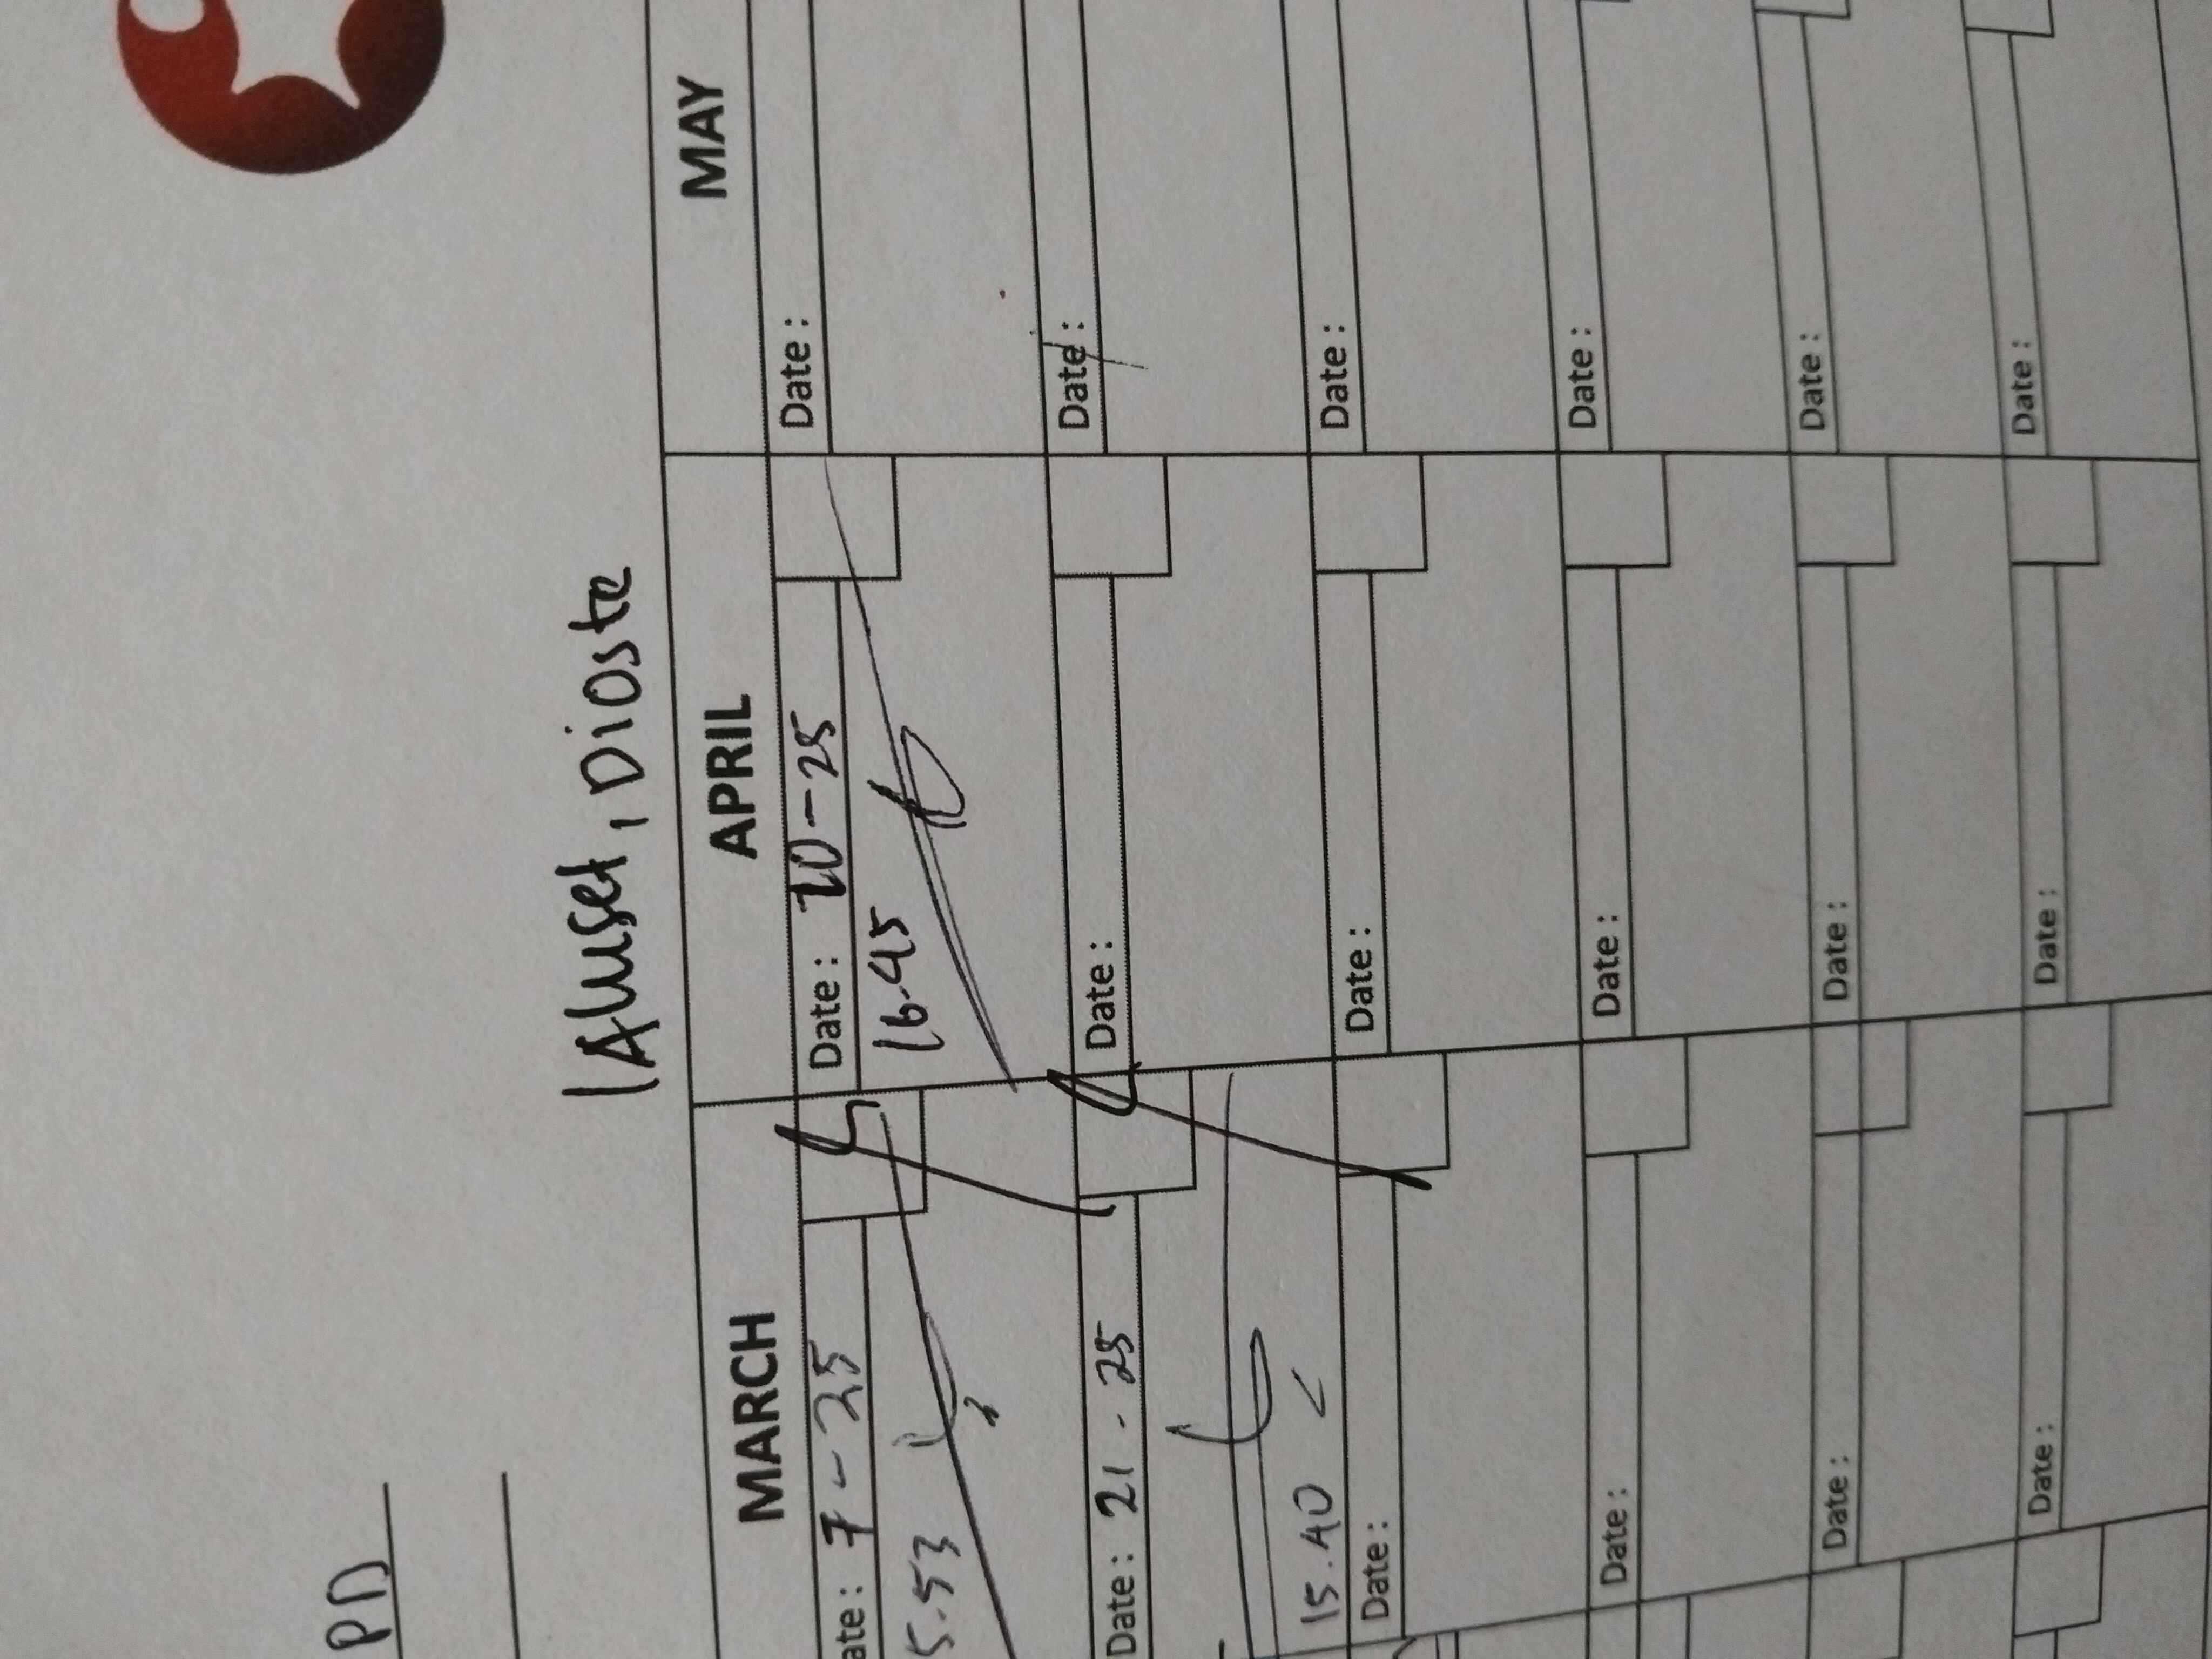 PD
MARCH APRIL MAY
ate: 7-25 Date: 10-25 Date:
5.53 16.45
Date: 21-25 Date: Date:
15.40
Date: Date: Date:
Date: Date: Date:
Date: Date: Date:
Date: Date: Date: